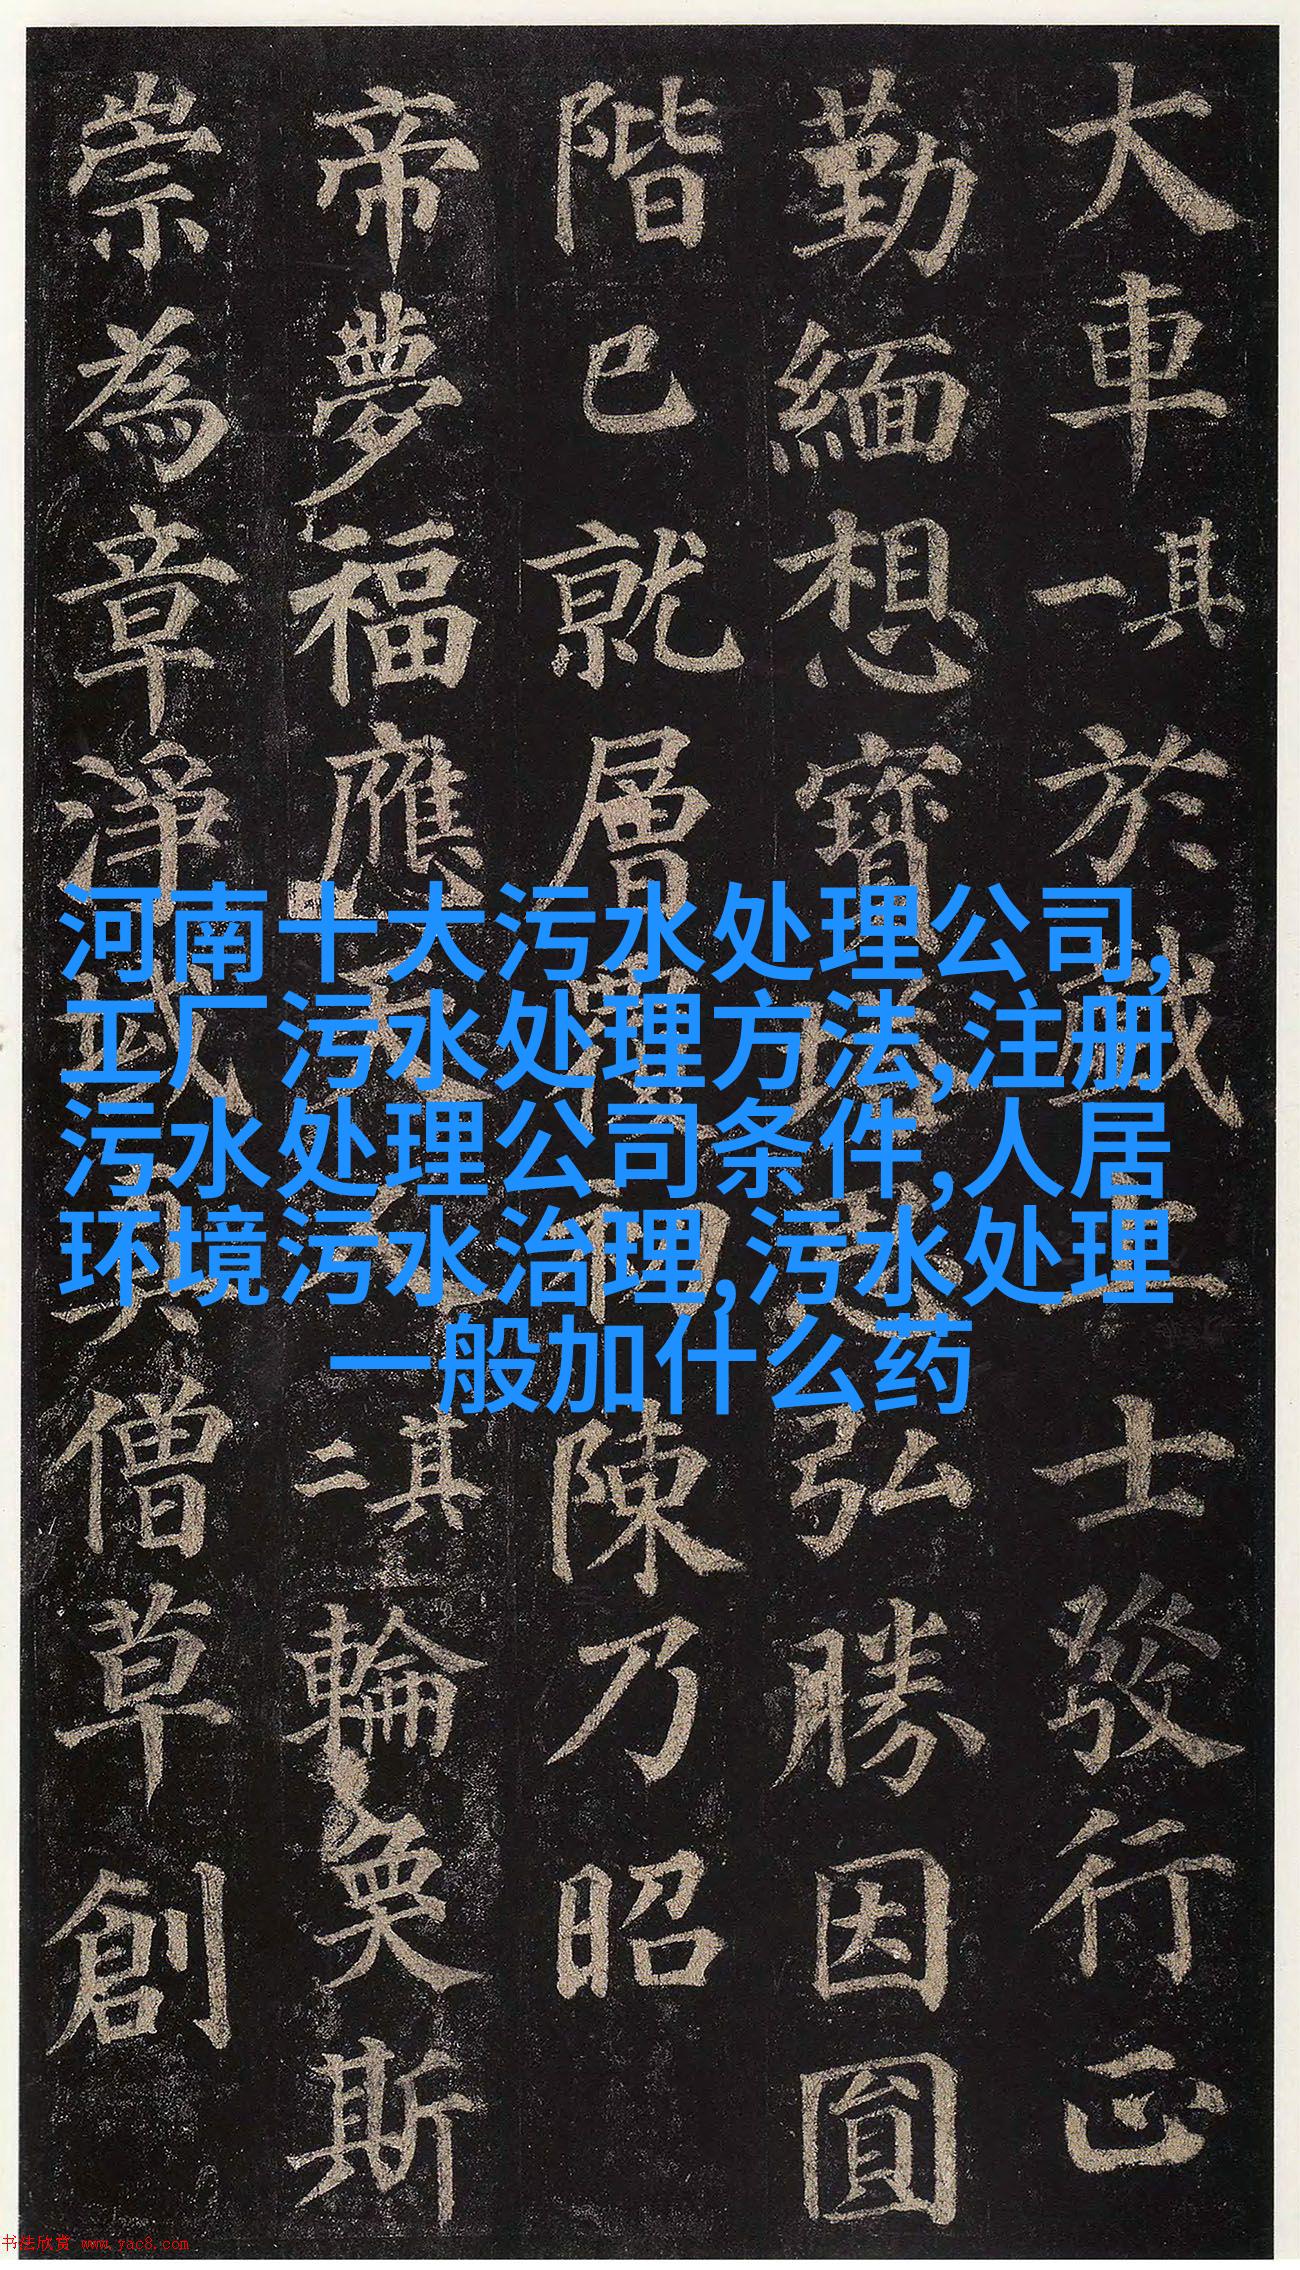 大車其一於戲上士發行正
勤緬想寶塔思弘勝因圓
階已就層覆初陳乃昭
帝夢福應天人其二輪奐斯
崇為章淨域真僧草創
河南十大污水处理公司,
工厂污水处理方法,注册
污水处理公司条件,人居
环境污水治理,污水处理
一般加什么药
书法欣赏 www.yac8.com